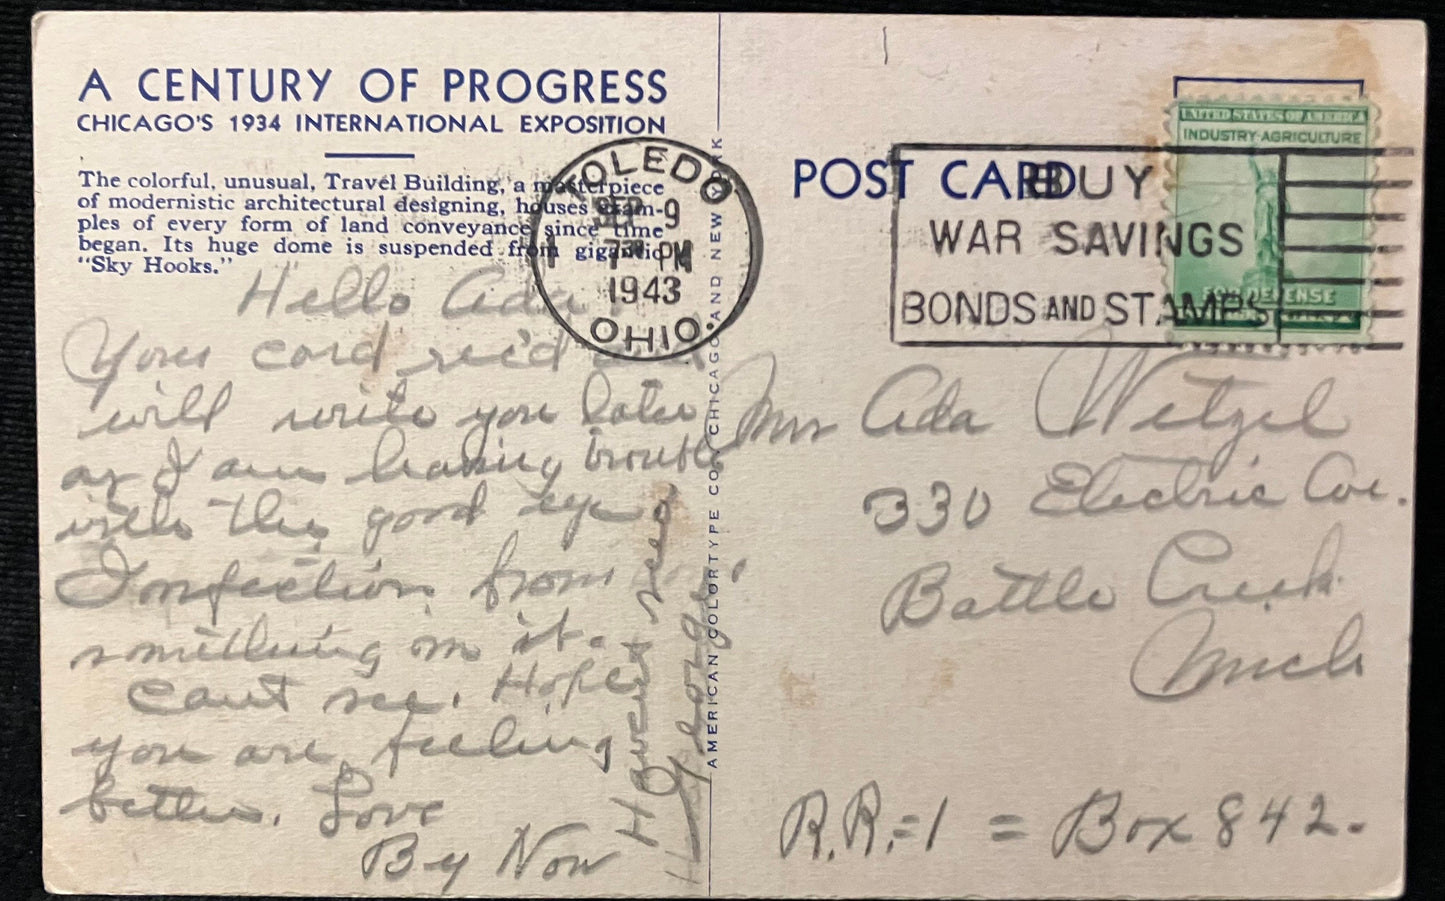 A CENTURY OF PROGRESS
CHICAGO'S 1934 INTERNATIONAL EXPOSITION
The colorful, unusual, Travel Building, a masterpiece
of modernistic architectural designing, houses exam-
ples of every form of land conveyance since time
began. Its huge dome is suspended from gigantic
"Sky Hooks."
Hello Ada
Your card rec'd and
will write you later
as I am having trouble
with the good eye
Infection from
something in it.
Cant see. Hope
you are feeling
better. Love
By Now
Havent seen
George
AMERICAN COLORTYPE CO. CHICAGO AND NEW YORK
TOLEDO
SEP 9
7 PM
1943
OHIO.
POST CARD
BUY
WAR SAVINGS
BONDS AND STAMPS
UNITED STATES OF AMERICA
INDUSTRY·AGRICULTURE
FOR DEFENSE
Mrs Ada Wetzel
330 Electric Ave.
Battle Creek
Mich
R.R.=1 = Box 842.